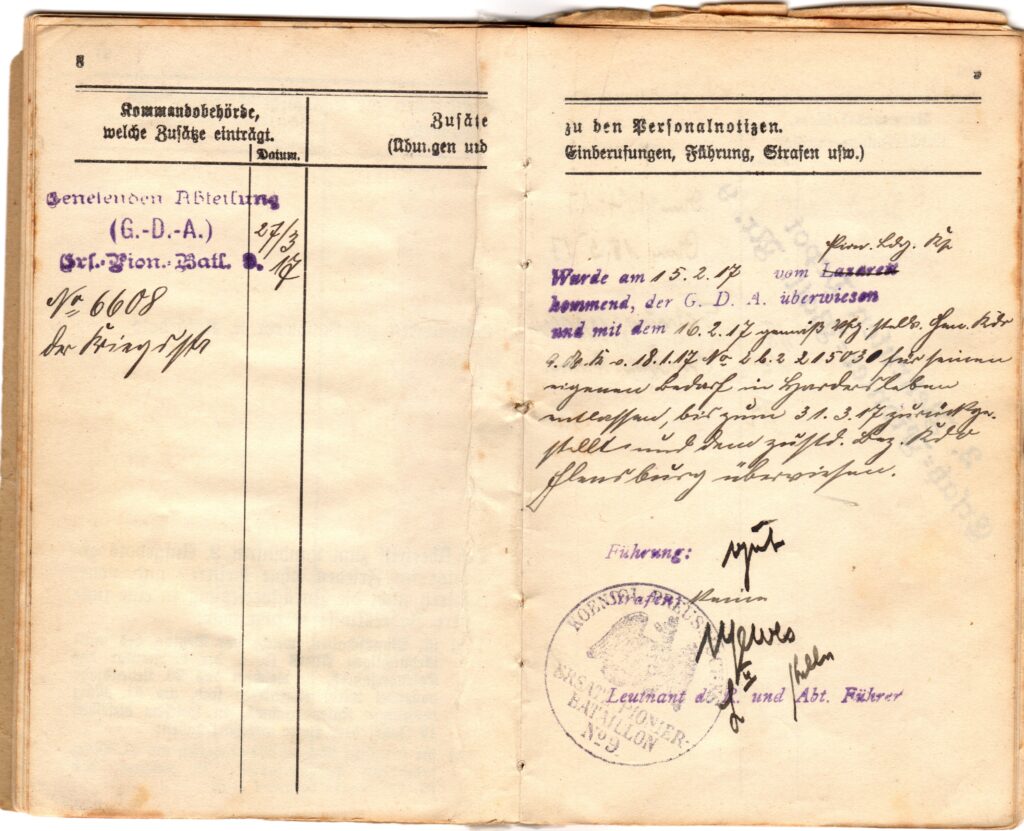 8
Kommandobehörde,
welche Zusätze einträgt.
Datum.
Zusätze
(Übungen und
Genesenden Abteilung
(G.-D.-A.)
Ers.-Pion.-Batl. 9.
27/3
17
No 6608
der Kriegsst
9
zu den Personalnotizen.
Einberufungen, Führung, Strafen usw.)
Pion. Kp
Wurde am 15.2.17 vom Lazarett
kommend, der G. D. A. überwiesen
und mit dem 16.2.17 gemäß Vfg stellv. Gen. Kdo
9. A. K. v. 18.1.17 No 2 b. 2 215030 für seinen
eigenen Bedarf in Hadersleben
entlassen, bis zum 31.3.17 zurückge-
stellt und dem zustd. Bez. Kdo
Flensburg überwiesen.
Führung: gut
Strafen keine
Leutnant d. R. und Abt. Führer
KOENIGL. PREUSS.
ERSATZ-PIONIER-
BATAILLON
No 9.